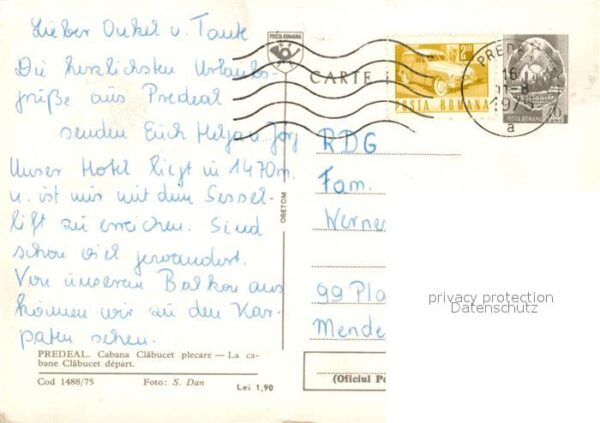 Lieber Onkel u. Tante
Die herzlichsten Urlaubs-
grüße aus Predeal
senden Euch Helga u. Jörg
Unser Hotel liegt in 1470m
u. ist nur mit dem Sessel-
lift zu erreichen. Sind
schon viel gewandert.
Von unserem Balkon aus
können wir zu den Kar-
paten sehen.
PREDEAL. Cabana Clăbucet plecare — La ca-
bane Clăbucet départ.
Cod 1488/75 Foto: S. Dan Lei 1,90
OBETOM
POSTA ROMANA
CARTE
2,40
POSTA ROMANA
PREDEAL
16
11-8
197
a
POSTA ROMANA
30
RDG
Fam.
Werner
99 Pla
Mende
(Oficiul Po
privacy protection
Datenschutz